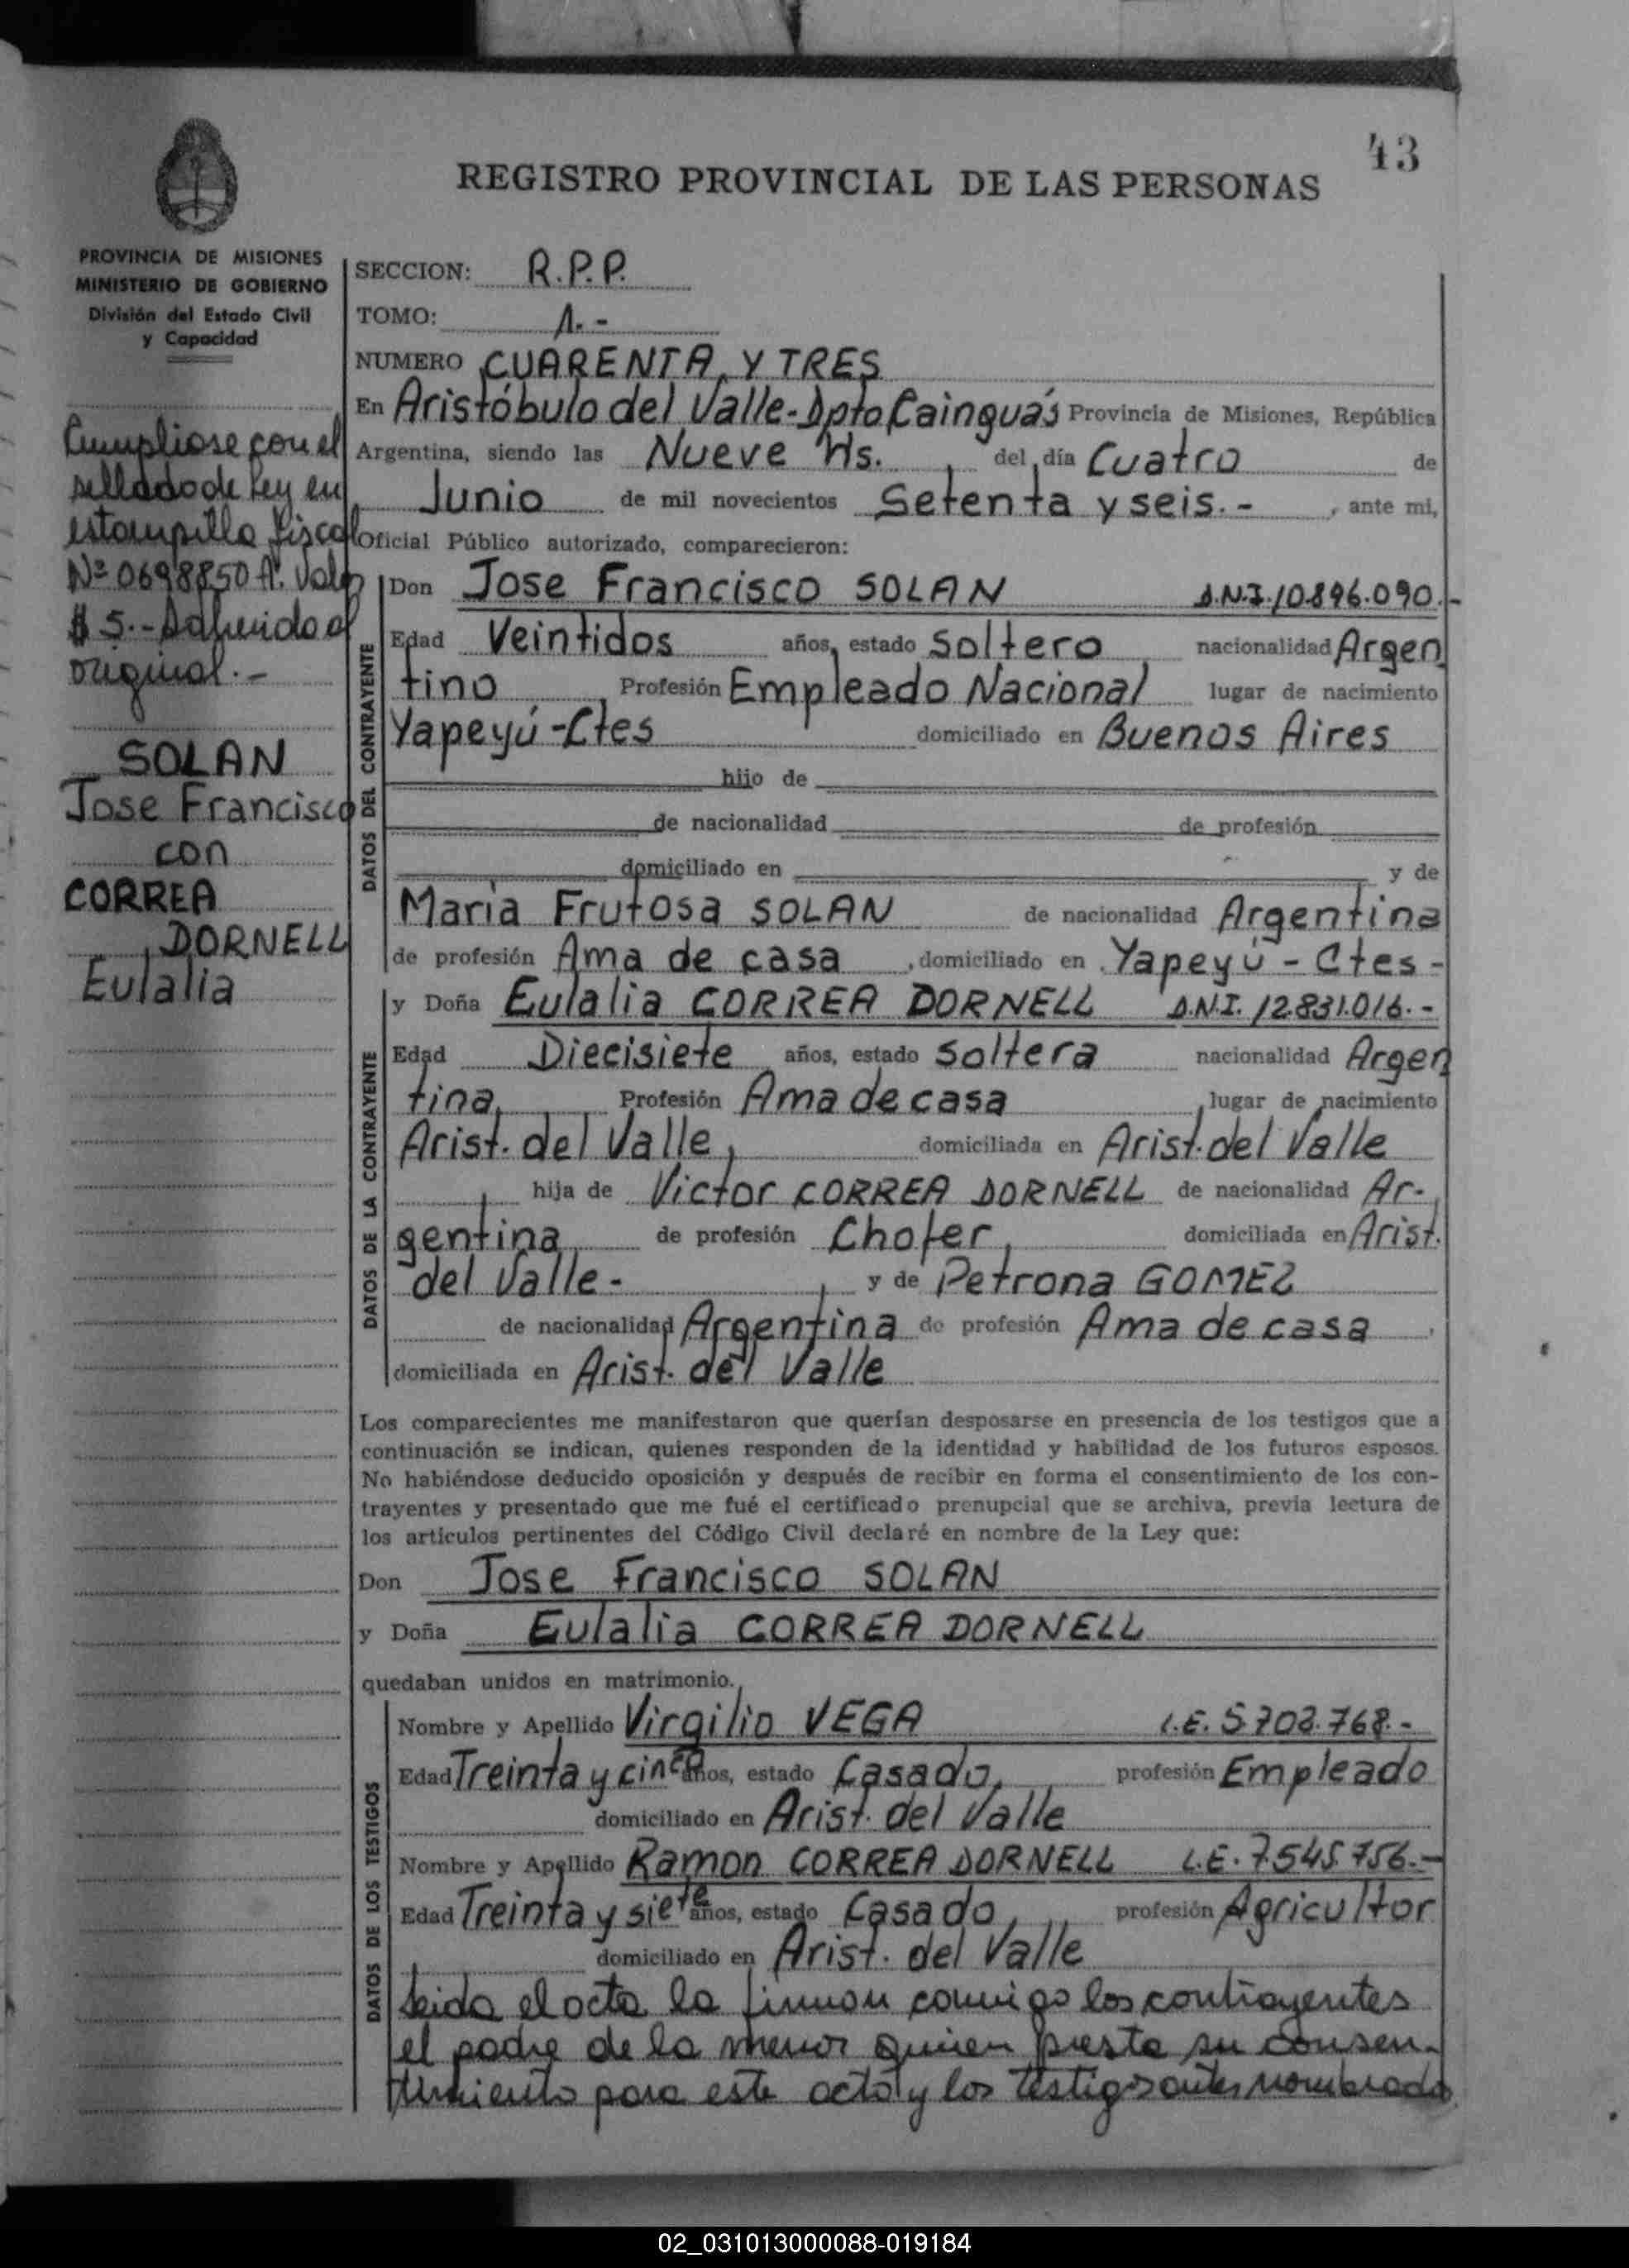 43
REGISTRO PROVINCIAL DE LAS PERSONAS
PROVINCIA DE MISIONES
MINISTERIO DE GOBIERNO
División del Estado Civil
y Capacidad
Cumpliose con el
sellado de Ley en
estampilla fiscal
Nº 0698850 A. Valor
$ 5.- Adherido al
original.-
SOLAN
Jose Francisco
con
CORREA
DORNELL
Eulalia
SECCION: R.P.P.
TOMO: 1.-
NUMERO CUARENTA Y TRES
En Aristóbulo del Valle-Dpto Cainguás Provincia de Misiones, República
Argentina, siendo las Nueve Hs. del día Cuatro de
Junio de mil novecientos Setenta y seis.- , ante mi,
Oficial Público autorizado, comparecieron:
DATOS DEL CONTRAYENTE
Don Jose Francisco SOLAN D.N.I. 10.896.090.-
Edad Veintidos años, estado Soltero nacionalidad Argen
tino Profesión Empleado Nacional lugar de nacimiento
Yapeyú-Ctes domiciliado en Buenos Aires
hijo de
de nacionalidad de profesión
domiciliado en y de
Maria Frutosa SOLAN de nacionalidad Argentina
de profesión Ama de casa , domiciliado en Yapeyú - Ctes -
DATOS DE LA CONTRAYENTE
y Doña Eulalia CORREA DORNELL D.N.I. 12.831.016.-
Edad Diecisiete años, estado Soltera nacionalidad Argen
tina, Profesión Ama de casa , lugar de nacimiento
Arist. del Valle, domiciliada en Arist. del Valle
, hija de Victor CORREA DORNELL de nacionalidad Ar-
gentina, de profesión Chofer, domiciliada en Arist.
del Valle.- , y de Petrona GOMEZ
de nacionalidad Argentina de profesión Ama de casa ,
domiciliada en Arist. del Valle
Los comparecientes me manifestaron que querían desposarse en presencia de los testigos que a
continuación se indican, quienes responden de la identidad y habilidad de los futuros esposos.
No habiéndose deducido oposición y después de recibir en forma el consentimiento de los con-
trayentes y presentado que me fué el certificado prenupcial que se archiva, previa lectura de
los articulos pertinentes del Código Civil declaré en nombre de la Ley que:
Don Jose Francisco SOLAN
y Doña Eulalia CORREA DORNELL
quedaban unidos en matrimonio.
DATOS DE LOS TESTIGOS
Nombre y Apellido Virgilio VEGA L.E. 5.702.768.-
Edad Treinta y cinco años, estado Casado, profesión Empleado
domiciliado en Arist. del Valle
Nombre y Apellido Ramon CORREA DORNELL L.E. 7.545.756.-
Edad Treinta y siete años, estado Casado, profesión Agricultor
domiciliado en Arist. del Valle
Leida el acta la firman conmigo los contrayentes
el padre de la menor quien presta su consen-
timiento para este acto y los testigos antes nombrados
02_031013000088-019184